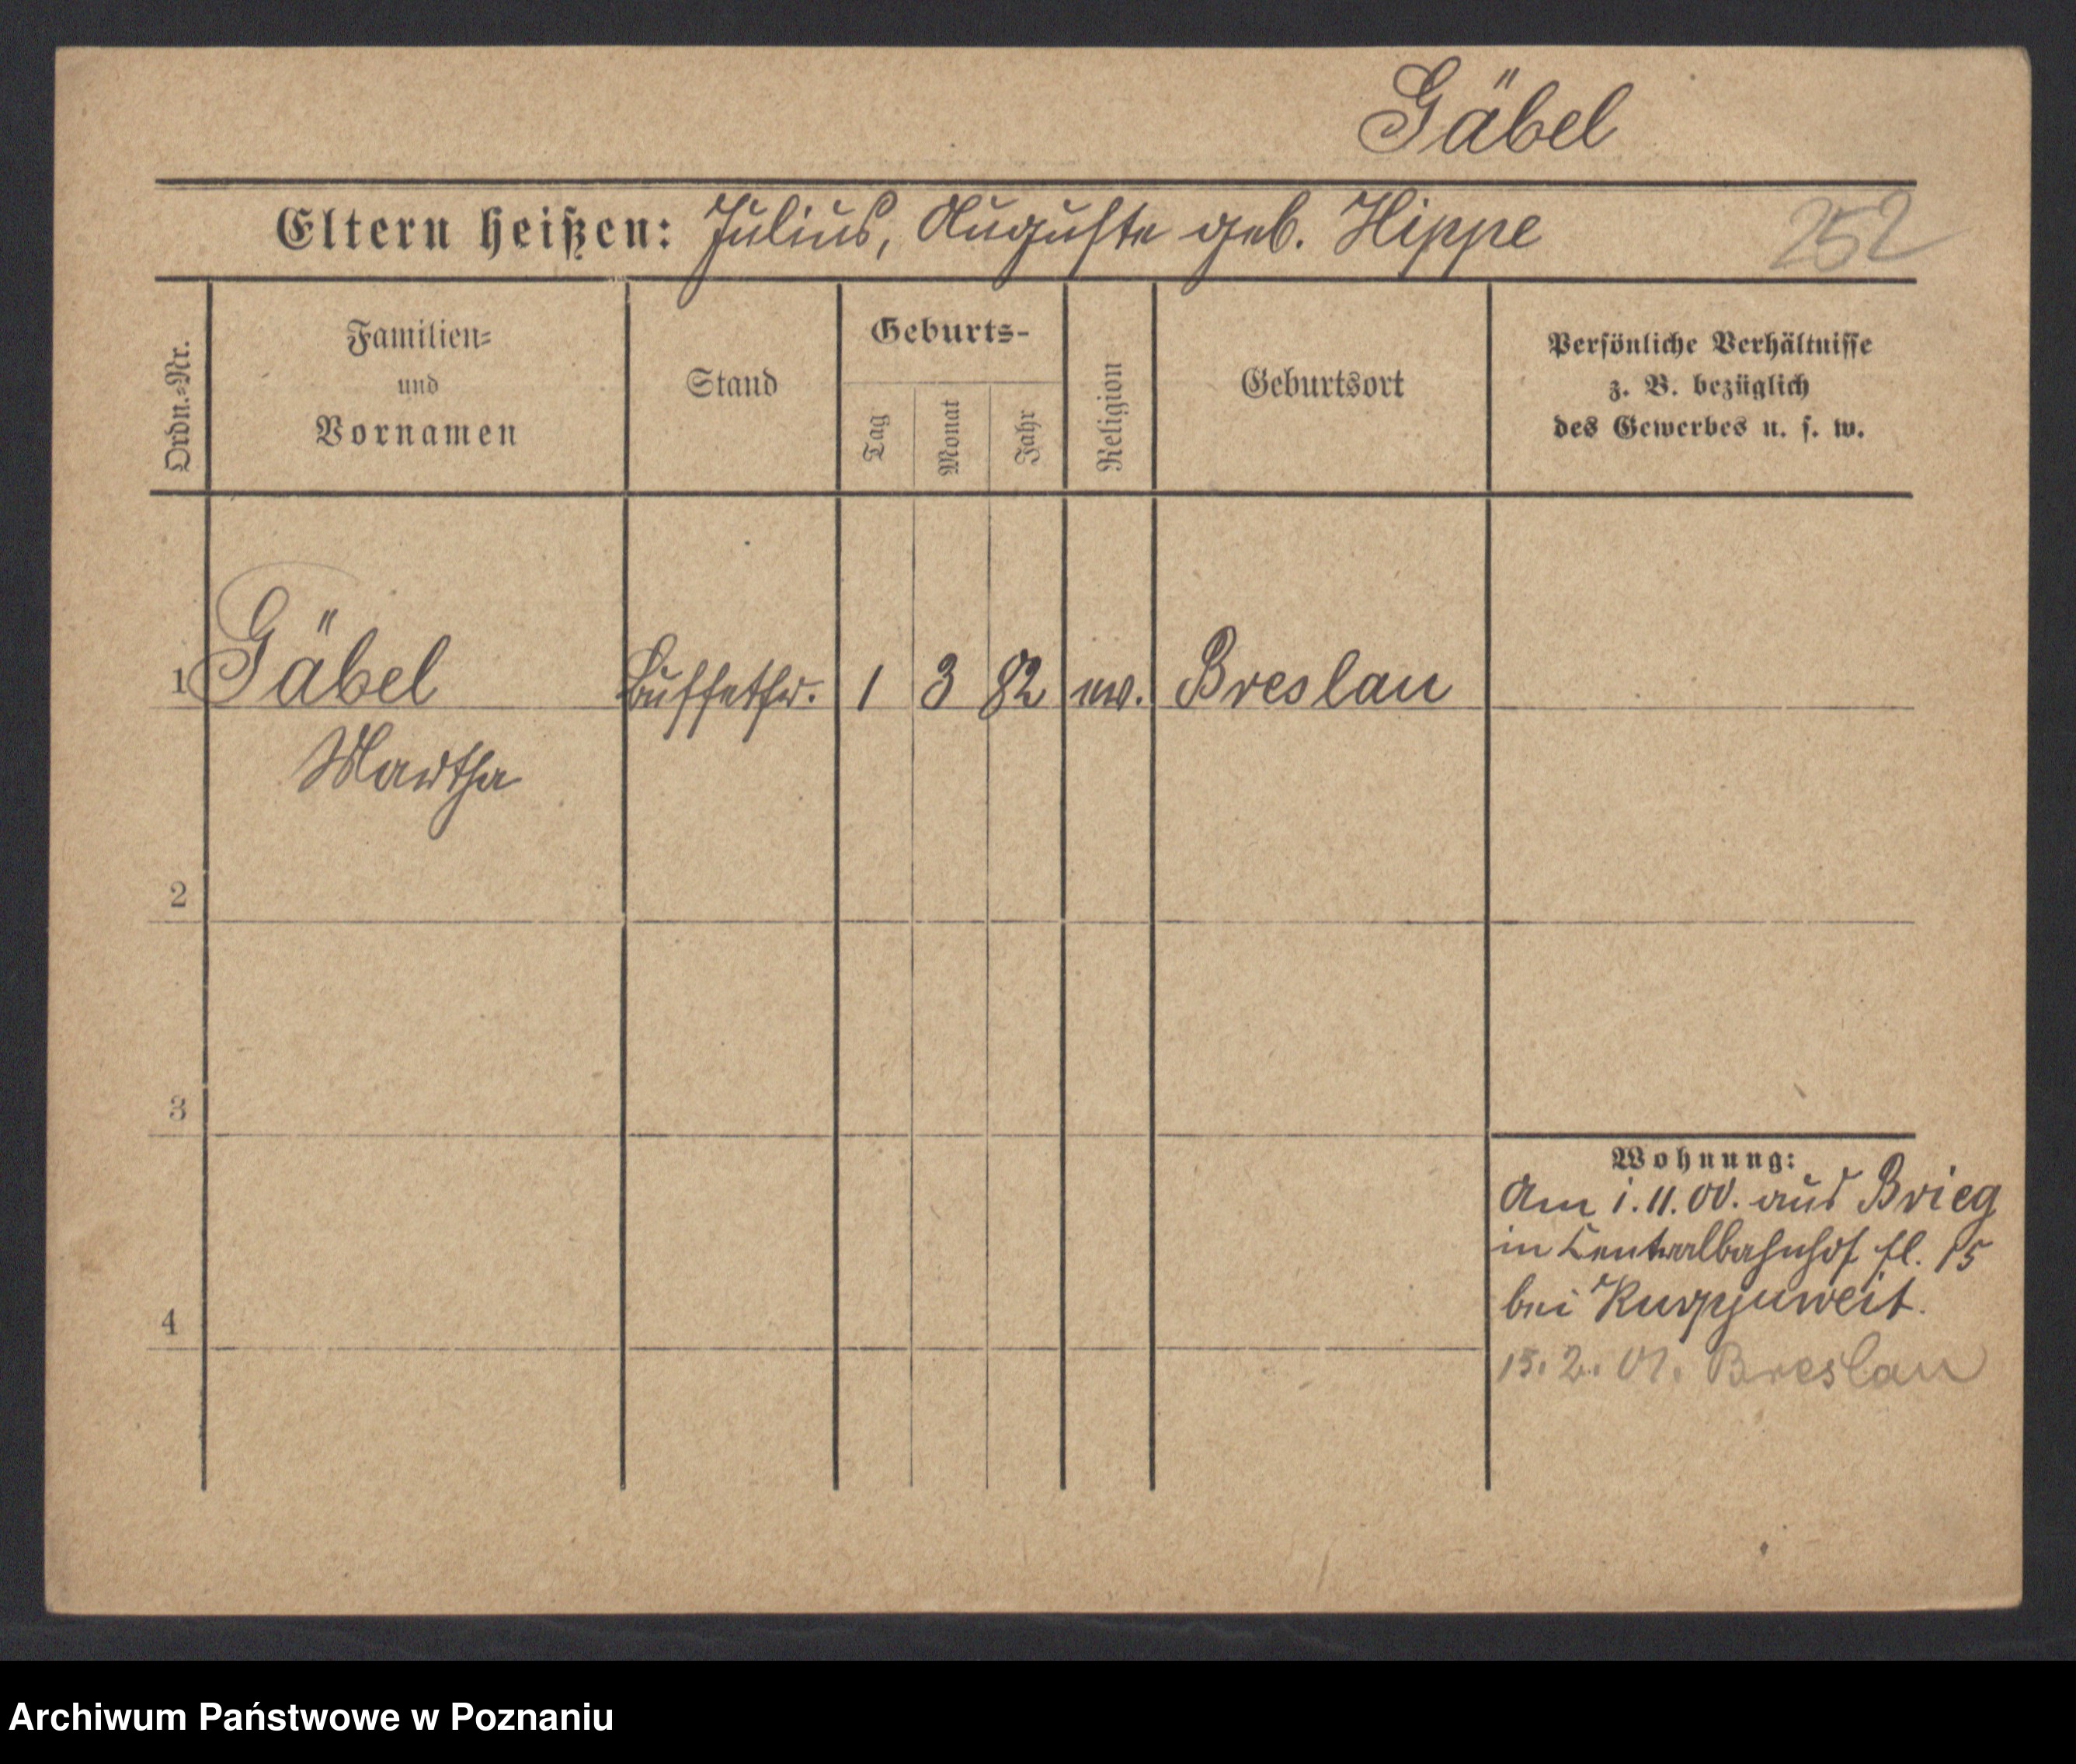 Gäbel
Eltern heißen: Julius, Auguste geb. Hippe 252
Ordn.=Nr.
Familien=
und
Vornamen
Stand
Geburts-
Tag
Monat
Jahr
Religion
Geburtsort
Persönliche Verhältnisse
z. B. bezüglich
des Gewerbes u. s. w.
1 Gäbel 1 3 82 ev. Breslau
Martha
2
3
4
Wohnung:
Am 1.11.00. aus Brieg
in Centralbahnhof fl. 15
bei
15. 2. 01. Breslau
Archiwum Państwowe w Poznaniu